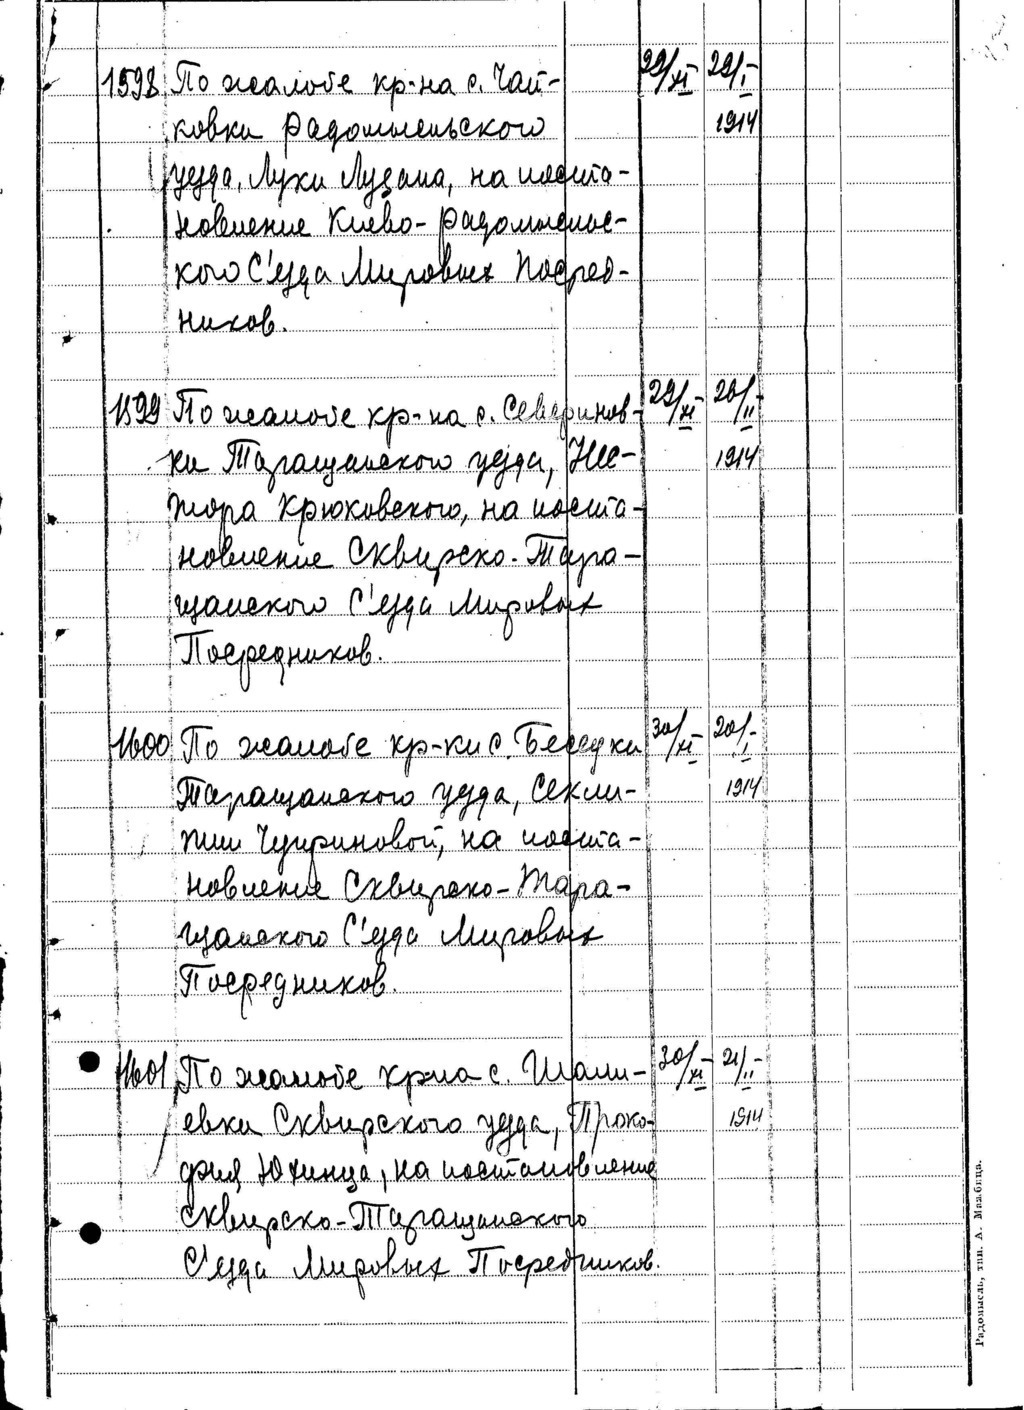 1598 По жалобе кр-на с. Чай- 29/XI- 29/I-
ковки Радомысльского 1914
уезда, Луки Лузана, на поста-
новление Киево-Радомысльс-
кого С'езда Мировых Посред-
ников.
1599 По жалобе кр-на с. Северинов- 29/XI- 20/II-
ки Таращанского уезда, Нес- 1914
тора Крюковского, на поста-
новление Сквирско-Тара-
щанского С'езда Мировых
Посредников.
1600 По жалобе кр-ки с. Беседки 30/XI- 20/I-
Таращанского уезда, Секли- 1914
тии Чуприновой, на поста-
новление Сквирско-Тара-
щанского С'езда Мировых
Посредников.
1601 По жалобе крна с. Шали- 30/XI- 21/II-
евки Сквирского уезда, Проко- 1914
фия Юхинца, на постановление
Сквирско-Таращанского
С'езда Мировых Посредников.
Радомысль, тип. А.